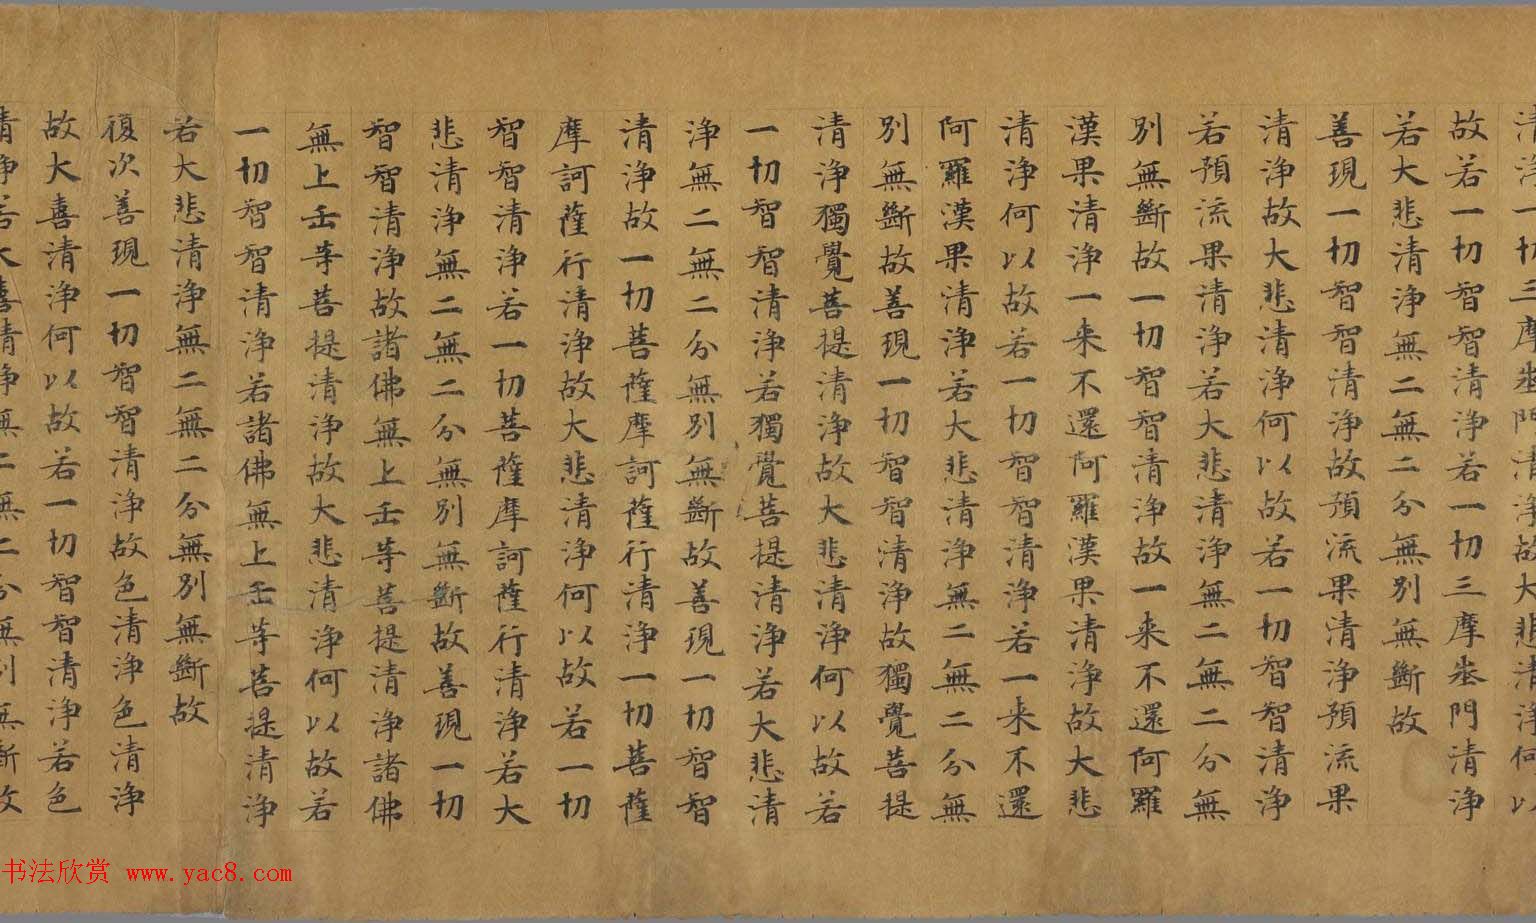 清淨一切三摩埊門清淨故大悲清淨何以
故若一切智智清淨若一切三摩埊門清淨
若大悲清淨無二無二分無別無斷故
善現一切智智清淨故預流果清淨預流果
清淨故大悲清淨何以故若一切智智清淨
若預流果清淨若大悲清淨無二無二分無
別無斷故一切智智清淨故一来不還阿羅
漢果清淨一来不還阿羅漢果清淨故大悲
清淨何以故若一切智智清淨若一来不還
阿羅漢果清淨若大悲清淨無二無二分無
別無斷故善現一切智智清淨故獨覺菩提
清淨獨覺菩提清淨故大悲清淨何以故若
一切智智清淨若獨覺菩提清淨若大悲清
淨無二無二分無別無斷故善現一切智智
清淨故一切菩薩摩訶薩行清淨一切菩薩
摩訶薩行清淨故大悲清淨何以故若一切
智智清淨若一切菩薩摩訶薩行清淨若大
悲清淨無二無二分無別無斷故善現一切
智智清淨故諸佛無上𠙺等菩提清淨諸佛
無上𠙺等菩提清淨故大悲清淨何以故若
一切智智清淨若諸佛無上𠙺等菩提清淨
若大悲清淨無二無二分無別無斷故
復次善現一切智智清淨故色清淨色清淨
故大喜清淨何以故若一切智智清淨若色
清淨若大喜清淨無二無二分無別無斷故
书法欣赏 www.yac8.com